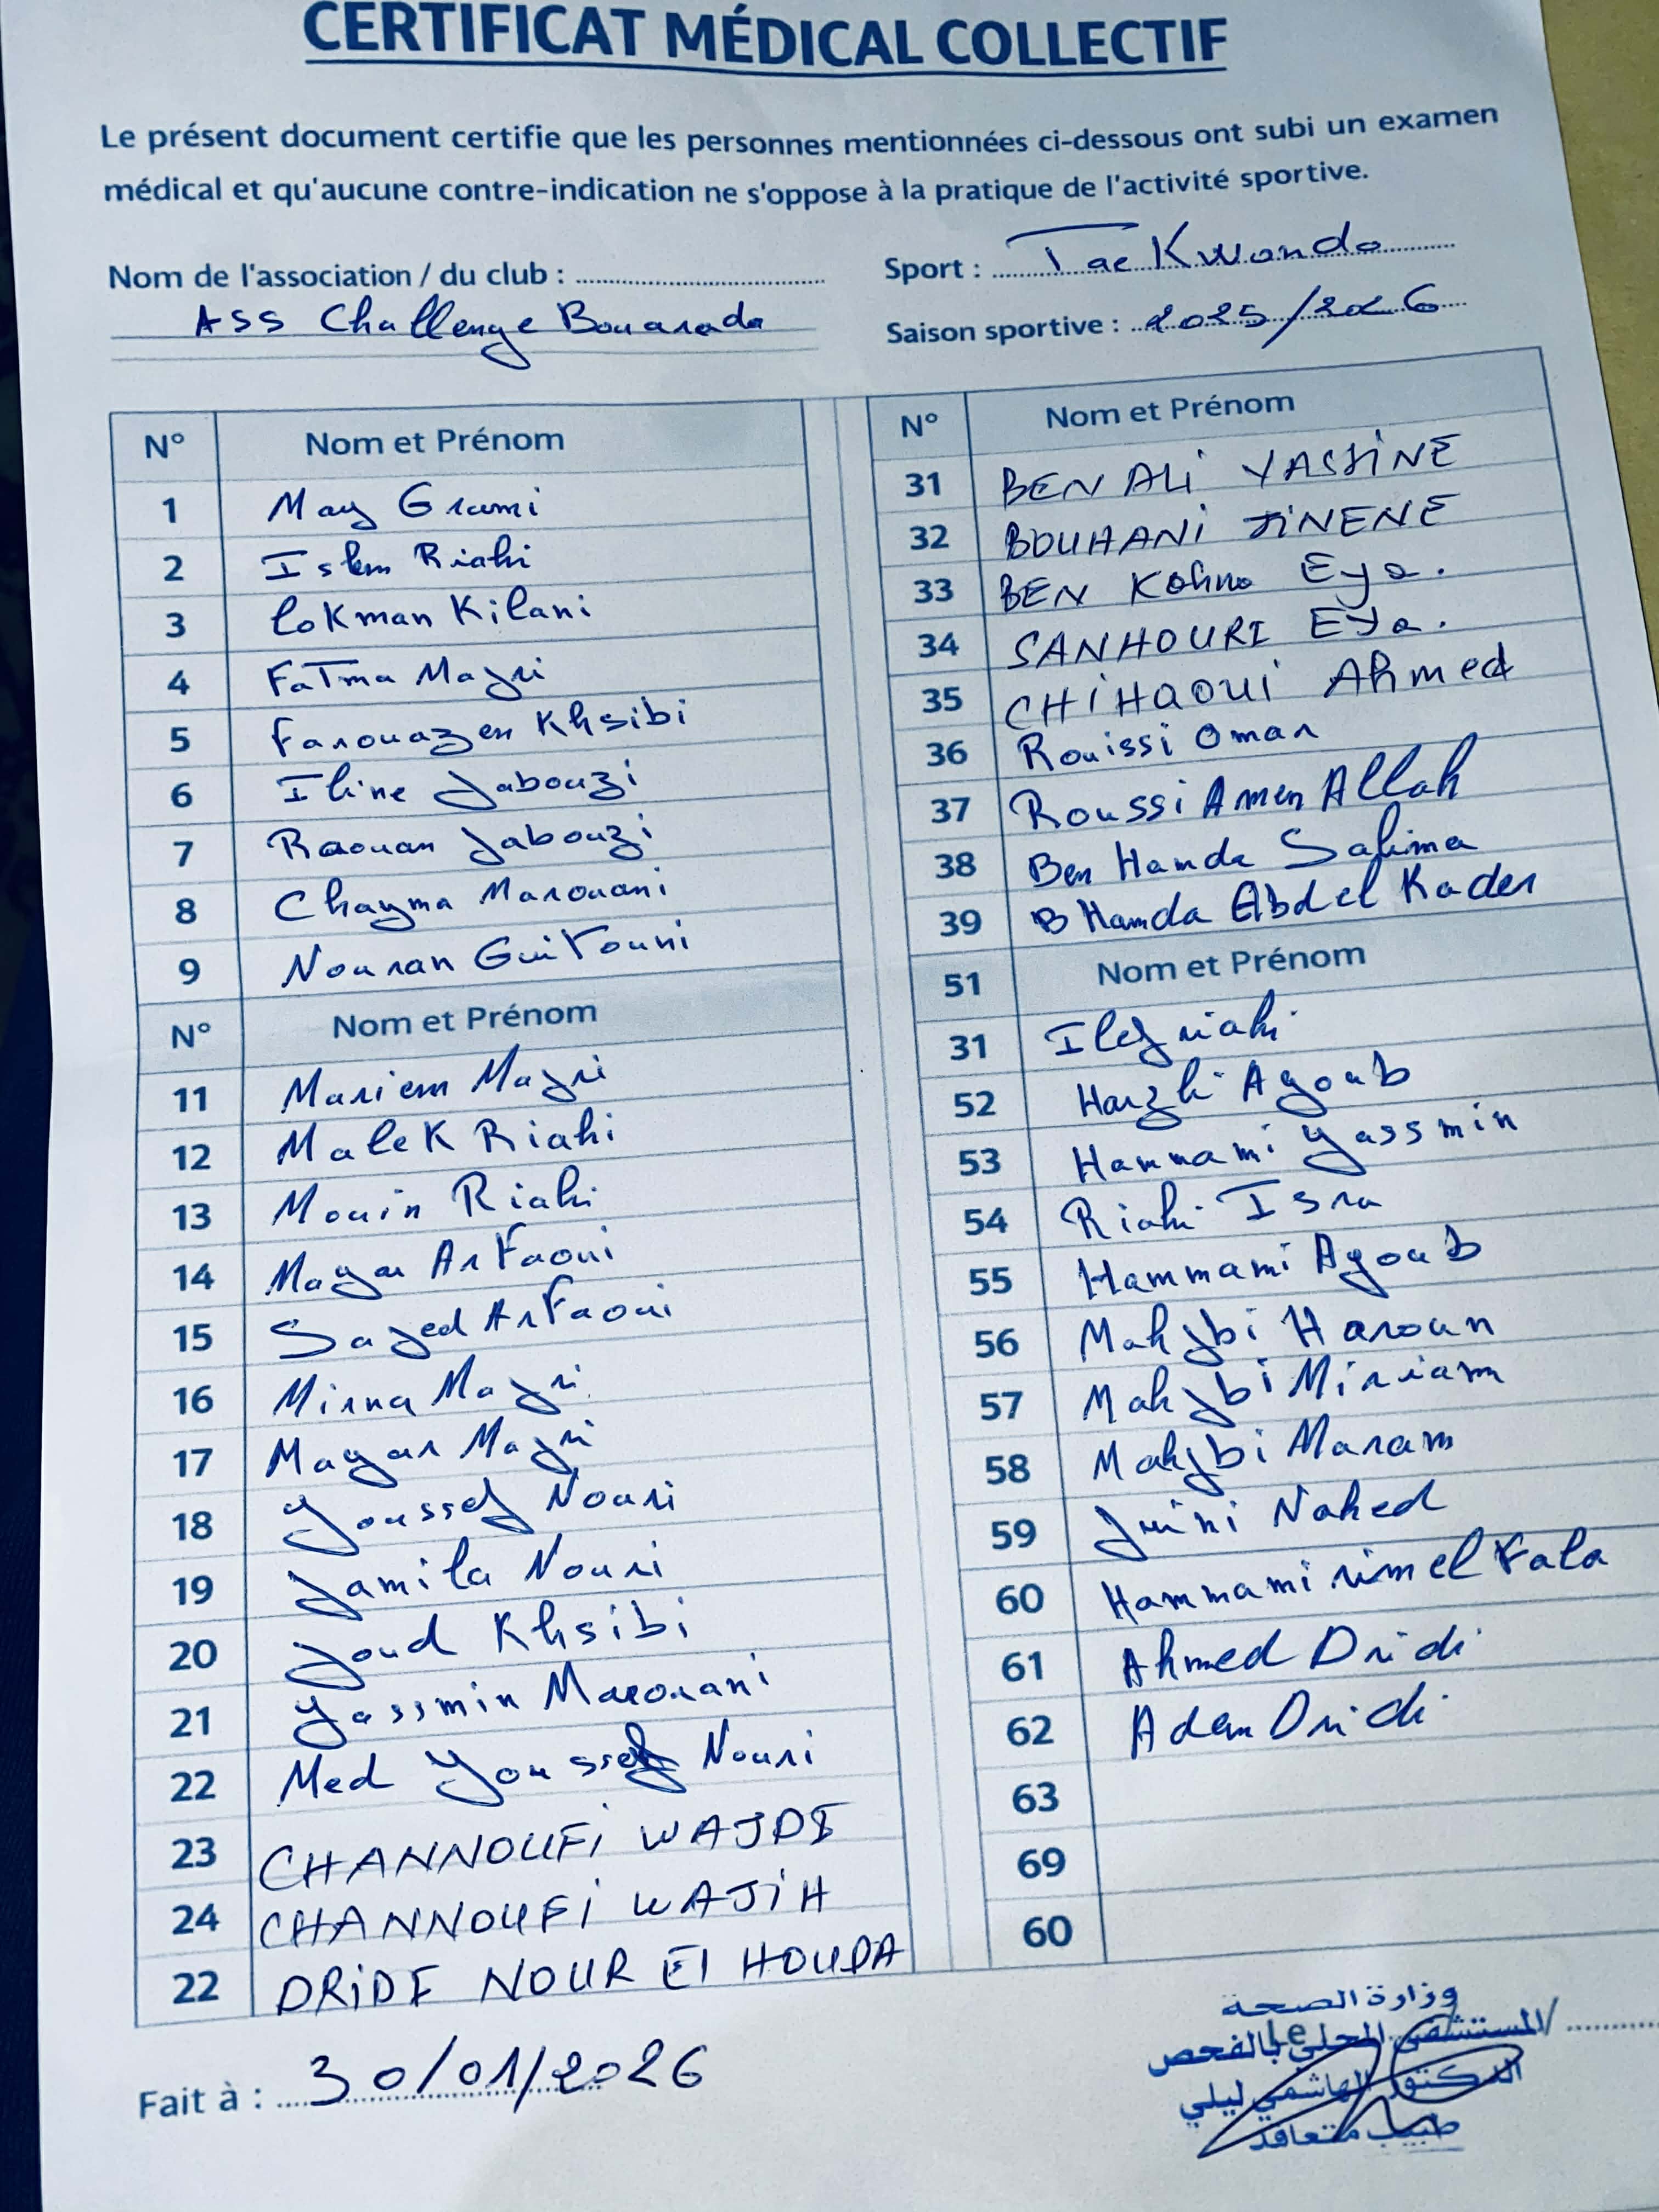 CERTIFICAT MÉDICAL COLLECTIF
Le présent document certifie que les personnes mentionnées ci-dessous ont subi un examen
médical et qu'aucune contre-indication ne s'oppose à la pratique de l'activité sportive.
Nom de l'association / du club :
ASS Challenge Bouarada
Sport : TaeKwondo
Saison sportive : 2025/2026
N° Nom et Prénom
1 May Grami
2 Islem Riahi
3 loKman Kilani
4 FaTma Majri
5 Farouazen Khsibi
6 Iline Jabouzi
7 Raouan Jabouzi
8 Chayma Marouani
9 Nouran GuiTouni
N° Nom et Prénom
11 Mariem Majri
12 MaleK Riahi
13 Mouin Riahi
14 Mayar ArFaoui
15 Sajed ArFaoui
16 Mirna Majri
17 Mayar Majri
18 Youssef Nouri
19 Jamila Nouri
20 Joud Khsibi
21 Yassmin Marouani
22 Med Youssef Nouri
23 CHANNOUFi WAJDI
24 CHANNOUFi WAJiH
22 DRiDI NOUR El HOUDA
N° Nom et Prénom
31 BEN ALi YASSiNE
32 BOUHANi JiNENE
33 BEN Eya.
34 SANHOURI Eya.
35 CHiHAOUi Ahmed
36 Rouissi Omar
37 Roussi Amen Allah
38 Ben Hamda Salima
39 B Hamda Abdel Kader
51 Nom et Prénom
31 riahi
52 Harzli Ayoub
53 Hammami Yassmin
54 Riahi Isra
55 Hammami Ayoub
56 Mahjbi Haroun
57 Mahjbi Miriam
58 Mahjbi Maram
59 Juini Nahed
60 Hammami rim el Fala
61 Ahmed Dridi
62 Adem Dridi
63
69
60
Fait à : 30/01/2026
Le
وزارة الصحة
المستشفى المحلي بالفحص
الدكتور الهاشمي ليلي
طبيب متعاقد